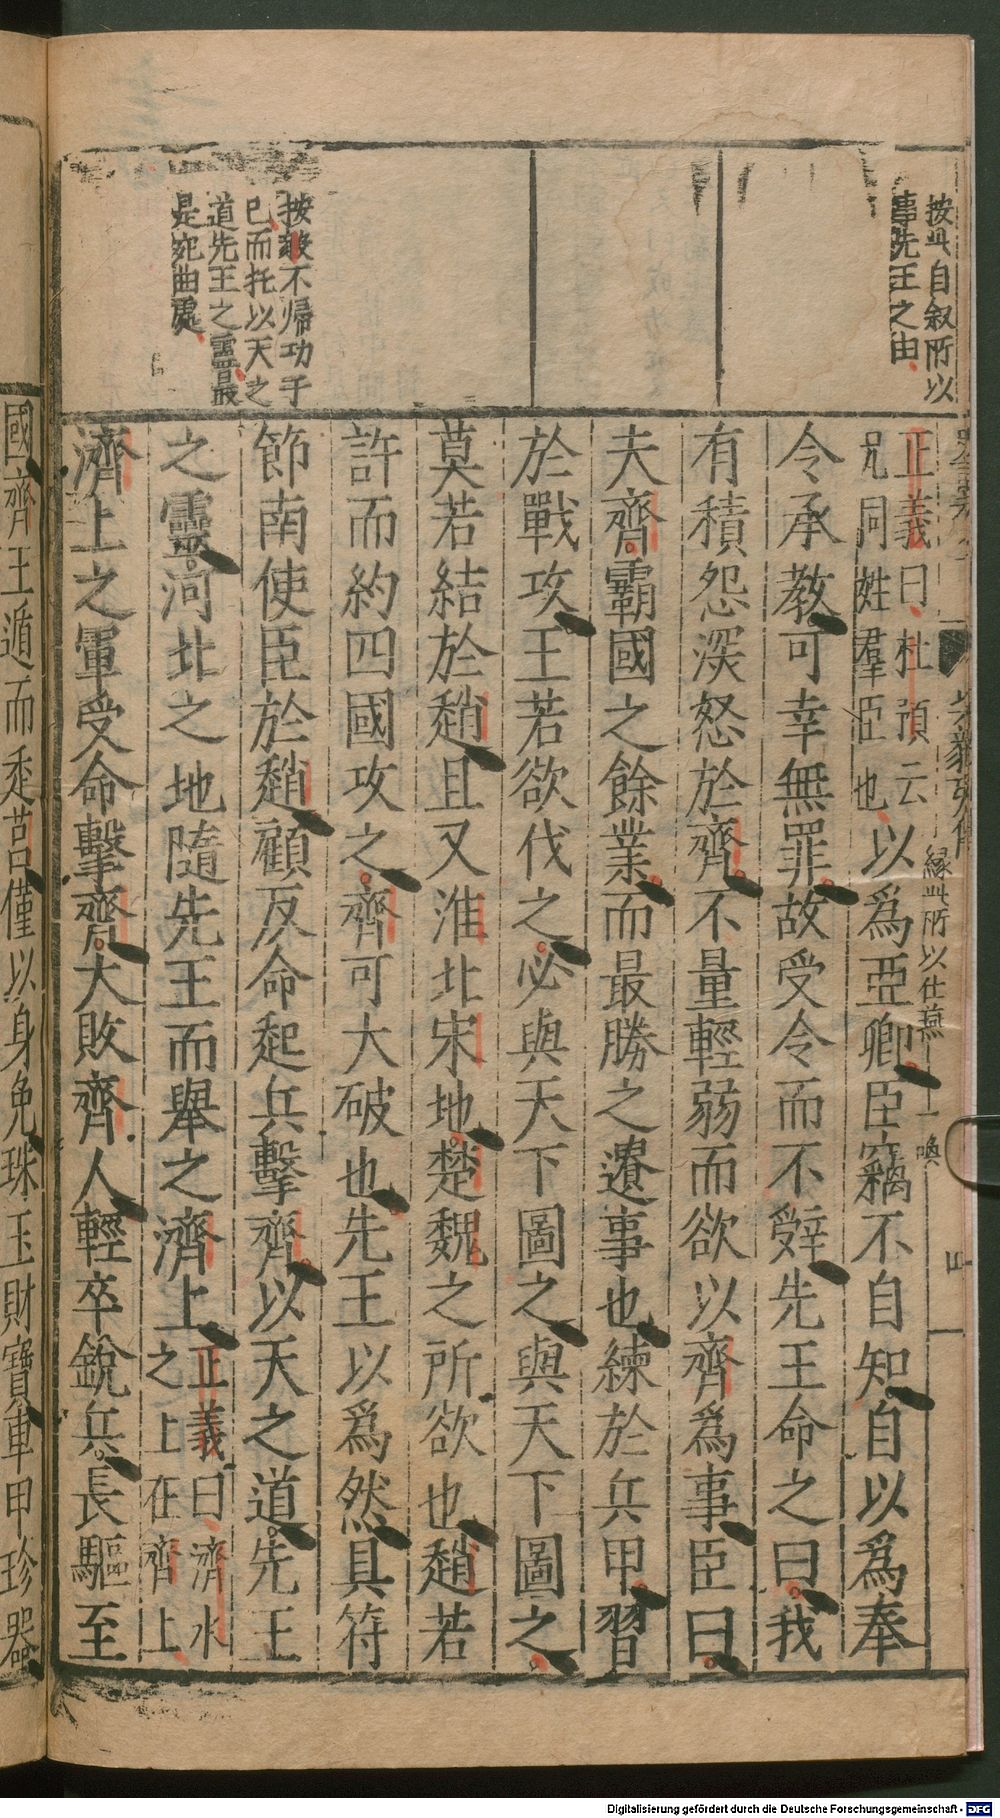 按此自叙所以
事先王之由
按毅不歸功于
已而托以天之
道先王之靈最
是宛曲處
樂毅列傳
四
緣此所以仕燕
一喚
正義曰杜預云
兄同姓羣臣也以爲亞卿臣竊不自知自以爲奉
令承教可幸無罪故受令而不辤先王命之曰我
有積怨深怒於齊不量輕弱而欲以齊爲事臣曰
夫齊霸國之餘業而最勝之遺事也練於兵甲習
於戰攻王若欲伐之必與天下圖之與天下圖之
莫若結於趙且又淮北宋地楚魏之所欲也趙若
許而約四國攻之齊可大破也先王以爲然具符
節南使臣於趙顧反命起兵擊齊以天之道先王
之靈河北之地隨先王而舉之濟上正義曰濟水
之上在齊上
濟上之軍受命擊齊大敗齊人輕卒銳兵長驅至
國齊王遁而走莒僅以身免珠玉財寶車甲珍器
Digitalisierung gefördert durch die Deutsche Forschungsgemeinschaft - DFG